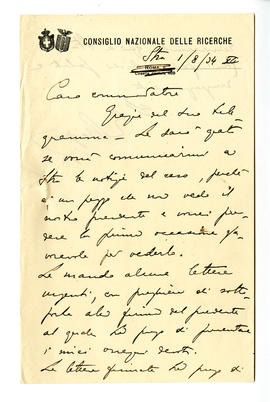 CONSIGLIO NAZIONALE DELLE RICERCHE
Stra 1/8/34 XII
ROMA
Caro commendatore
Grazie del suo tele-
gramma - Le sarò grato
se vorrà comunicarmi a
Stra le notizie del caso, perché
è un pezzo che non vedo il
nostro presidente e vorrei pren-
dere la prima occasione fa-
vorevole per vederlo.
Le mando alcune lettere
urgenti, con preghiera di sotto-
porle alla firma del presidente
al quale La prego di presentare
i miei ossequi devoti.
Le lettere firmate La prego di